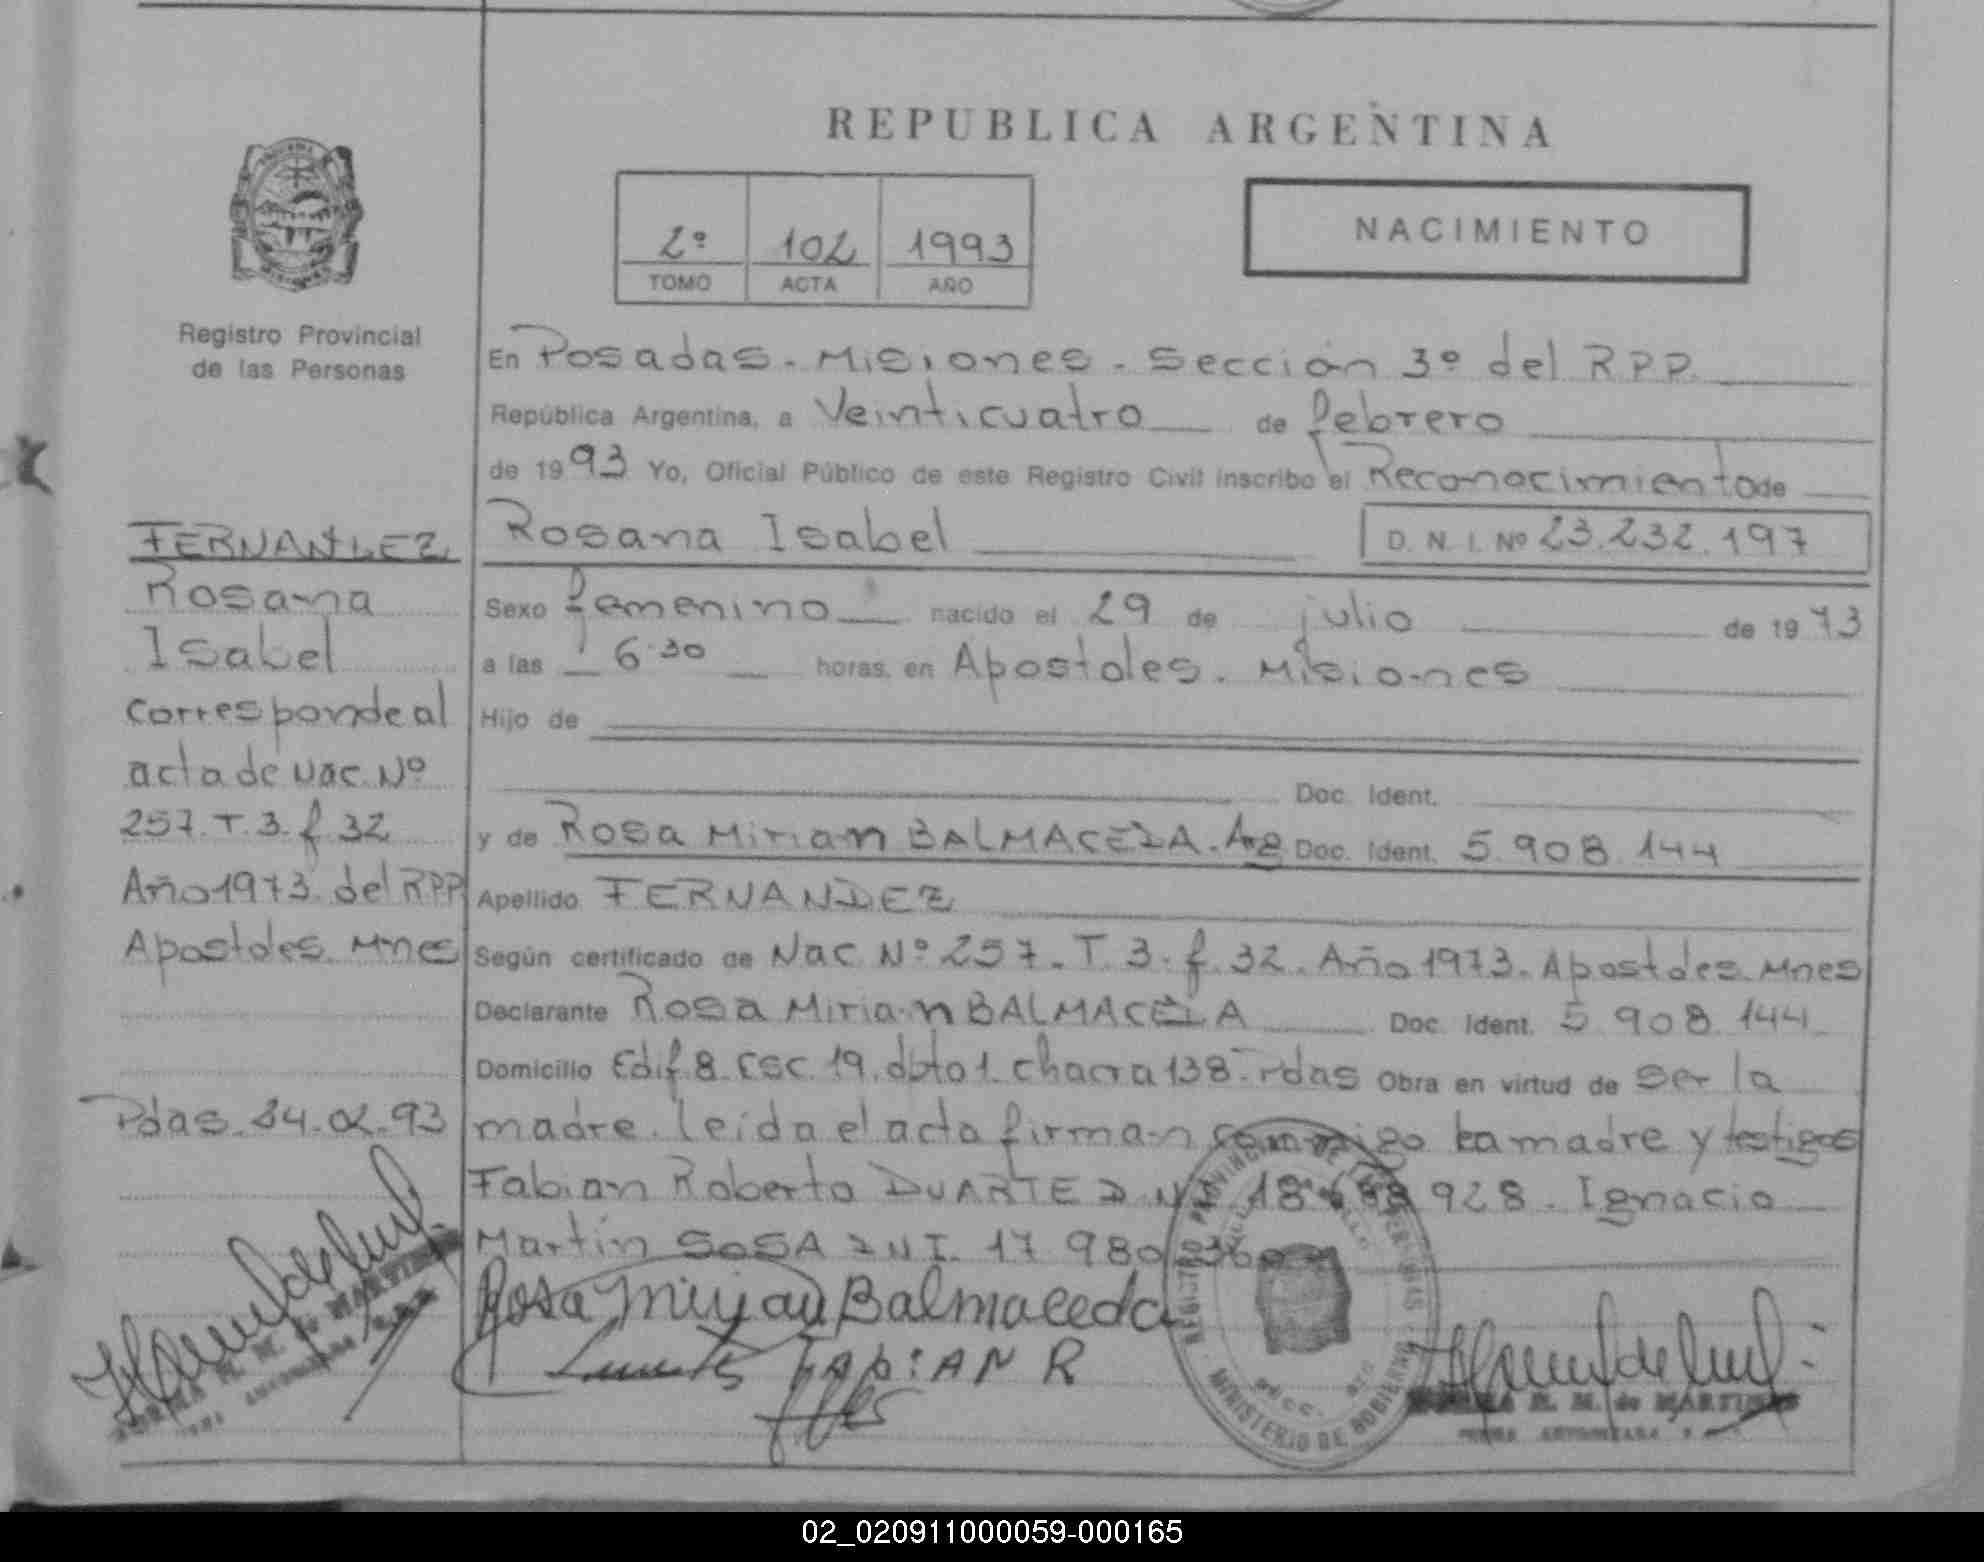 REPUBLICA ARGENTINA
2º 102 1993
TOMO ACTA AÑO
NACIMIENTO
Registro Provincial
de las Personas
En Posadas. Misiones. Sección 3º del R.P.P.
República Argentina, a Veinticuatro de febrero
de 1993 Yo, Oficial Público de este Registro Civil inscribo el Reconocimiento de
Rosana Isabel D. N. I. Nº 23.232.197
Sexo femenino nacido el 29 de julio de 1973
a las 6.30 horas, en Apostoles. Misiones
Hijo de
Doc. Ident.
y de Rosa Mirian BALMACEDA. Arg Doc. Ident. 5.908.144
Apellido FERNANDEZ
Según certificado de Nac. Nº 257. T. 3. f. 32. Año 1973. Apostoles. Mnes
Declarante Rosa Mirian BALMACEDA Doc. Ident. 5.908.144
Domicilio Edif. 8. Esc. 19. dpto 1. chacra 138. Pdas Obra en virtud de ser la
madre. leida el acta firman conmigo la madre y testigos
Fabian Roberto DUARTE D.N. 18. 928. Ignacio
Martin SOSA DNI. 17.980.360
Rosa Mirian Balmaceda
FABIAN R
FERNANDEZ
Rosana
Isabel
Corresponde al
acta de Nac. Nº
257. T. 3. f. 32
Año 1973. del RPP
Apostoles. Mnes
Pdas. 24.02.93
REGISTRO PROVINCIAL DE LAS PERSONAS
MINISTERIO DE GOBIERNO
M. de MARTINEZ
M. de MARTINEZ
02_020911000059-000165